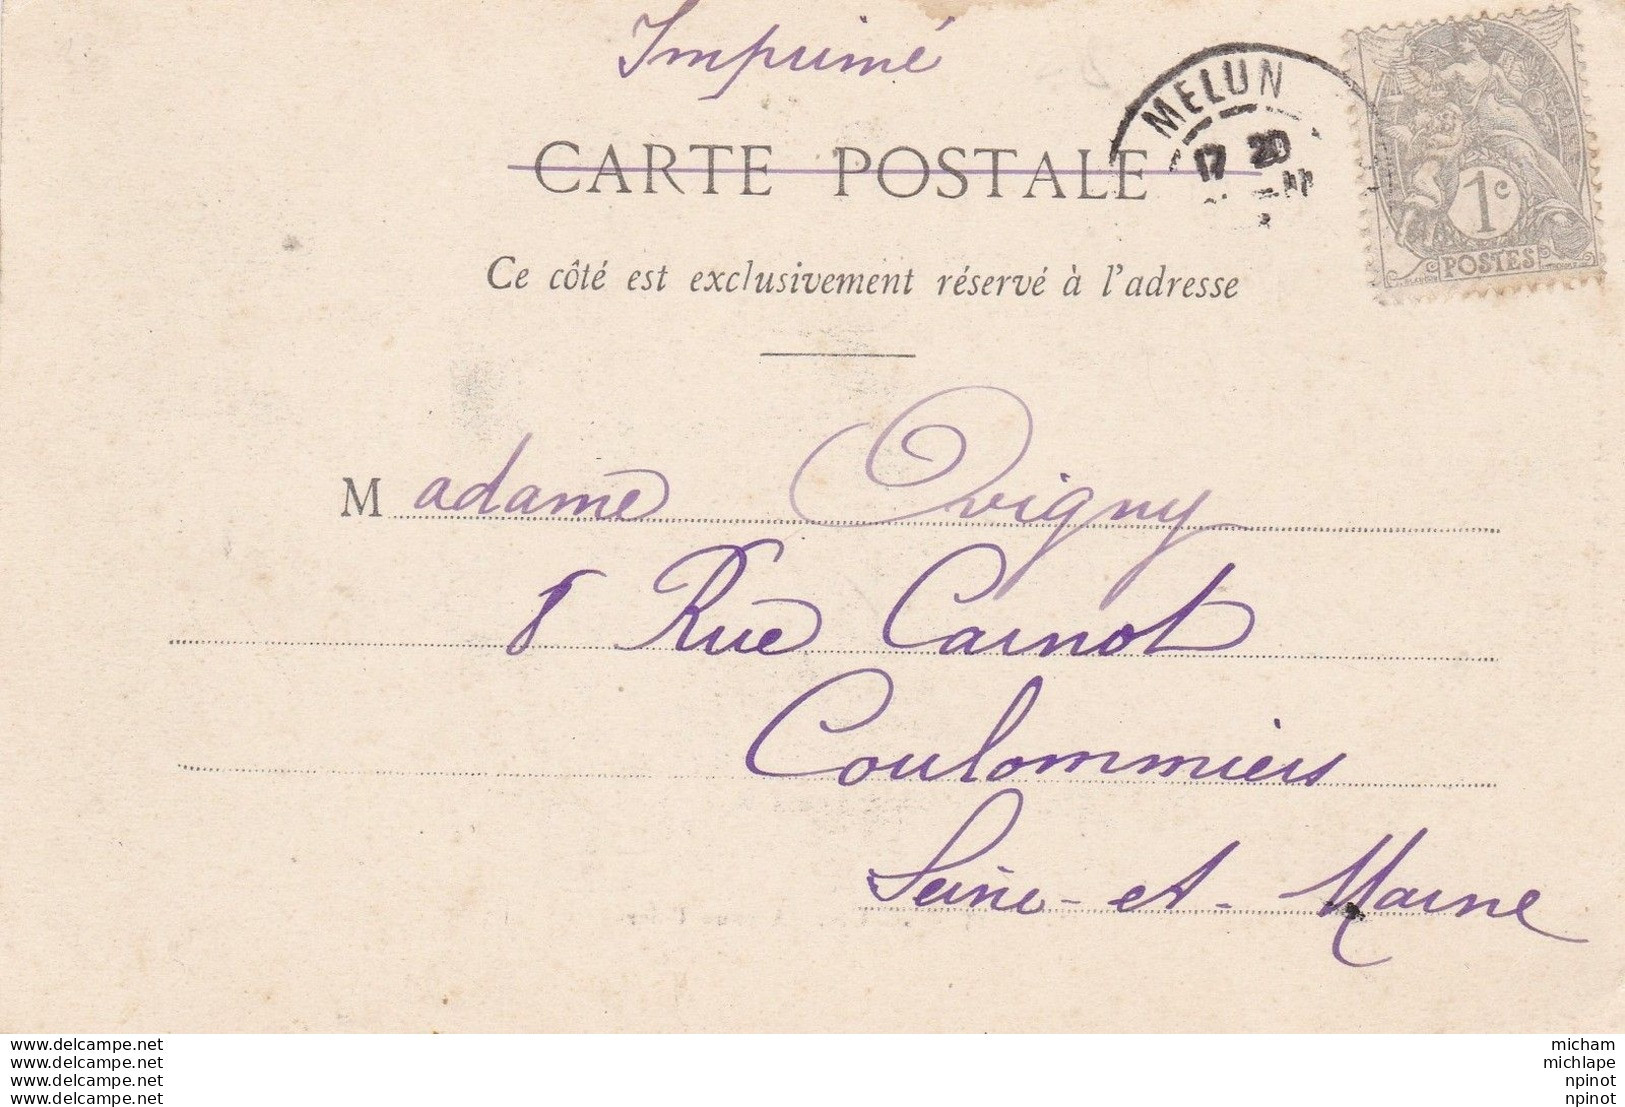 Imprimé
MELUN
17 20
CARTE POSTALE
1c
POSTES
Ce côté est exclusivement réservé à l'adresse
Madame Ovigny
8 Rue Carnot
Coulommiers
Seine-et-Marne
www.delcampe.net micham
www.delcampe.net michlape
www.delcampe.net npinot
www.delcampe.net npinot